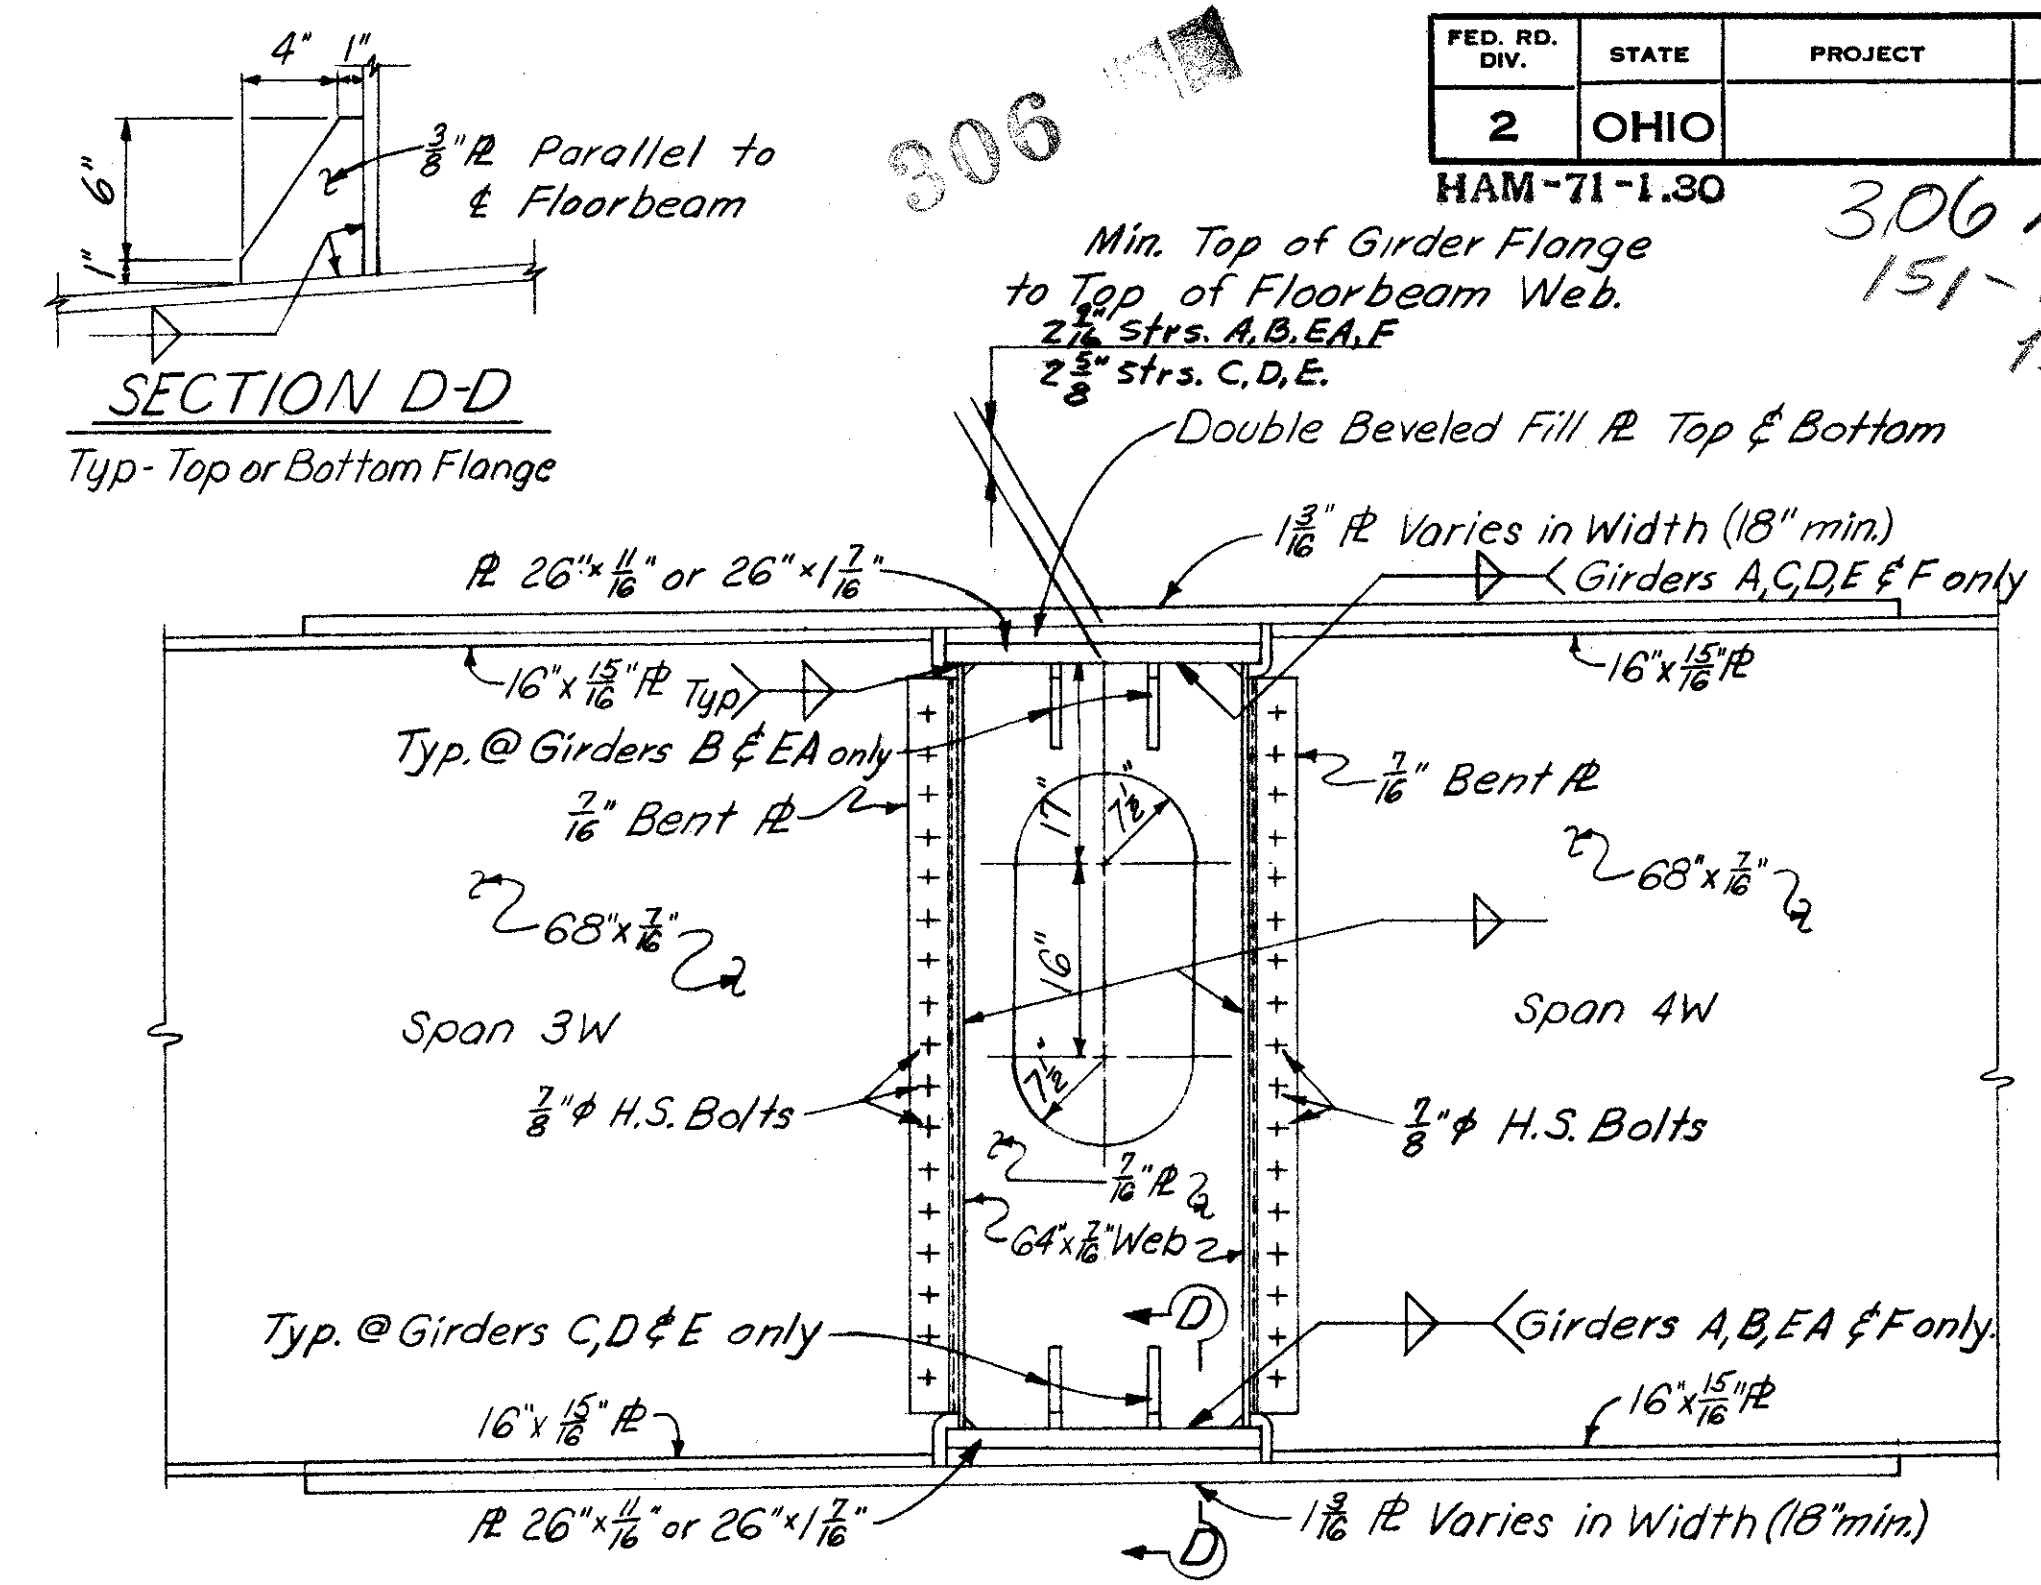 4" 1"
6"
1"
3/8" ℄ Parallel to
℄ Floorbeam
SECTION D-D
Typ - Top or Bottom Flange
306
FED. RD. DIV.
STATE
PROJECT
2
OHIO
HAM-71-1.30
306
151-
Min. Top of Girder Flange
to Top of Floorbeam Web.
Strs. A,B,EA,F
2 5/8" Strs. C,D,E.
Double Beveled Fill PL Top & Bottom
1 3/16" PL Varies in Width (18" min.)
PL 26"x 11/16" or 26"x1 7/16"
Girders A,C,D,E & F only
16"x 15/16" PL
Typ
16"x 15/16" PL
Typ. @ Girders B & EA only
7/16" Bent PL
7/16" Bent PL
17"
7 1/2"
68"x 7/16"
68"x 7/16"
16"
Span 3W
Span 4W
7 1/2"
7/8"ϕ H.S. Bolts
7/8"ϕ H.S. Bolts
7/16" PL
64"x 7/16" Web
D
Typ. @ Girders C,D & E only
Girders A,B,EA & F only.
16"x 15/16" PL
16"x 15/16" PL
PL 26"x 11/16" or 26"x1 7/16"
1 3/16 PL Varies in Width (18"min.)
D